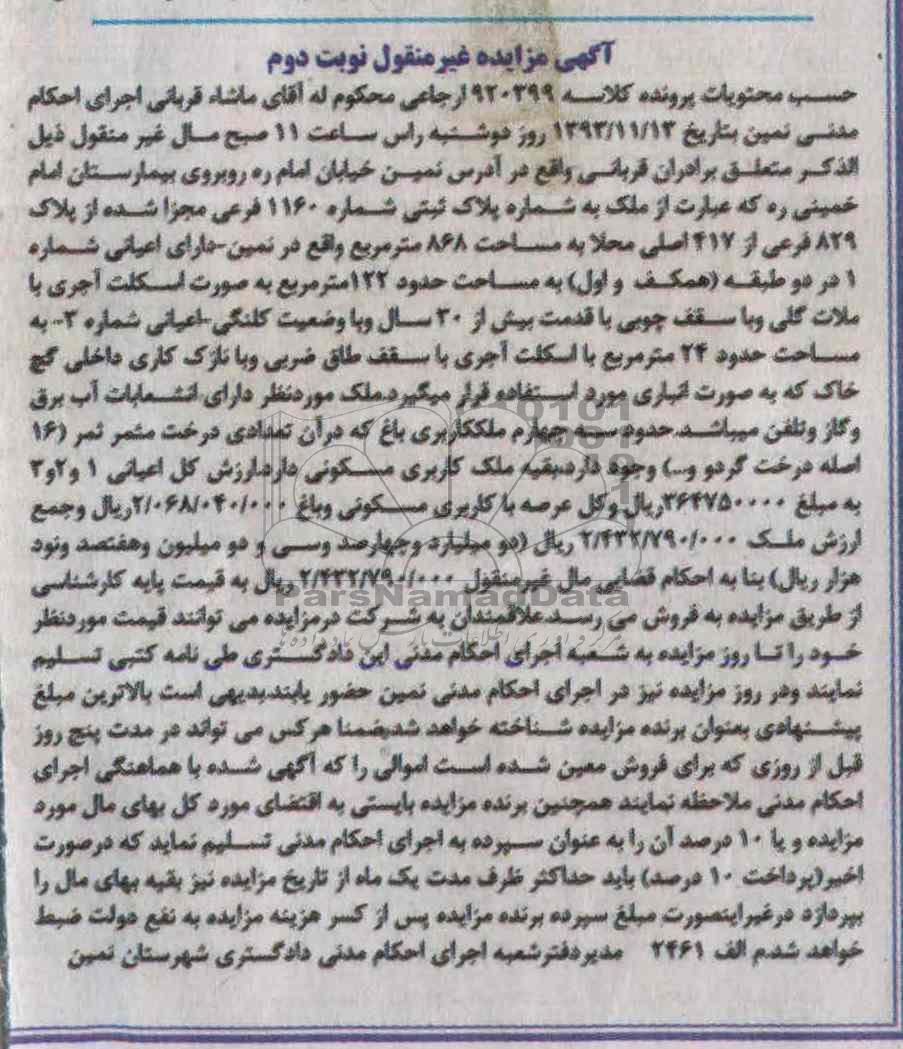 آگهی مزایده غیرمنقول نوبت دوم
حسب محتویات پرونده کلاسه ۹۲۰۳۹۹ ارجاعی محکوم له آقای ماشاء قربانی اجرای احکام
مدنی نمین بتاریخ ۱۳۹۳/۱۱/۱۳ روز دوشنبه راس ساعت ۱۱ صبح مال غیر منقول ذیل
الذکر متعلق برادران قربانی واقع در آدرس نمین خیابان امام ره روبروی بیمارستان امام
خمینی ره که عبارت از ملک به شماره پلاک ثبتی شماره ۱۱۶۰ فرعی مجزا شده از پلاک
۸۲۹ فرعی از ۴۱۷ اصلی محلا به مساحت ۸۶۸ مترمربع واقع در نمین-دارای اعیانی شماره
۱ در دو طبقه (همکف و اول) به مساحت حدود ۱۲۲مترمربع به صورت اسکلت آجری با
ملات گلی وبا سقف چوبی با قدمت بیش از ۳۰ سال وبا وضعیت کلنگی-اعیانی شماره ۲- به
مساحت حدود ۲۴ مترمربع با اسکلت آجری با سقف طاق ضربی وبا نازک کاری داخلی گچ
خاک که به صورت انباری مورد استفاده قرار میگیرد.ملک موردنظر دارای انشعابات آب برق
وگاز وتلفن میباشد.حدود سه چهارم ملککاربری باغ که درآن تعدادی درخت مثمر ثمر (۱۶
اصله درخت گردو و...) وجود دارد.بقیه ملک کاربری مسکونی دارد.ارزش کل اعیانی ۱ و۲و۳
به مبلغ ۳۶۴۷۵۰۰۰۰ریال وکل عرصه با کاربری مسکونی وباغ ۲/۰۶۸/۰۴۰/۰۰۰ریال وجمع
ارزش ملک ۲/۴۳۲/۷۹۰/۰۰۰ ریال (دو میلیارد وچهارصد وسی و دو میلیون وهفتصد ونود
هزار ریال) بنا به احکام قضایی مال غیرمنقول ۲/۴۳۲/۷۹۰/۰۰۰ ریال به قیمت پایه کارشناسی
از طریق مزایده به فروش می رسد.علاقمندان به شرکت درمزایده می توانند قیمت موردنظر
خود را تا روز مزایده به شعبه اجرای احکام مدنی این دادگستری طی نامه کتبی تسلیم
نمایند ودر روز مزایده نیز در اجرای احکام مدنی نمین حضور یابند.بدیهی است بالاترین مبلغ
پیشنهادی بعنوان برنده مزایده شناخته خواهد شد.ضمنا هرکس می تواند در مدت پنج روز
قبل از روزی که برای فروش معین شده است اموالی را که آگهی شده با هماهنگی اجرای
احکام مدنی ملاحظه نمایند همچنین برنده مزایده بایستی به اقتضای مورد کل بهای مال مورد
مزایده و یا ۱۰ درصد آن را به عنوان سپرده به اجرای احکام مدنی تسلیم نماید که درصورت
اخیر(پرداخت ۱۰ درصد) باید حداکثر ظرف مدت یک ماه از تاریخ مزایده نیز بقیه بهای مال را
بپردازد درغیراینصورت مبلغ سپرده برنده مزایده پس از کسر هزینه مزایده به نفع دولت ضبط
خواهد شد.م الف ۲۴۶۱ مدیردفترشعبه اجرای احکام مدنی دادگستری شهرستان نمین
ParsNamadData